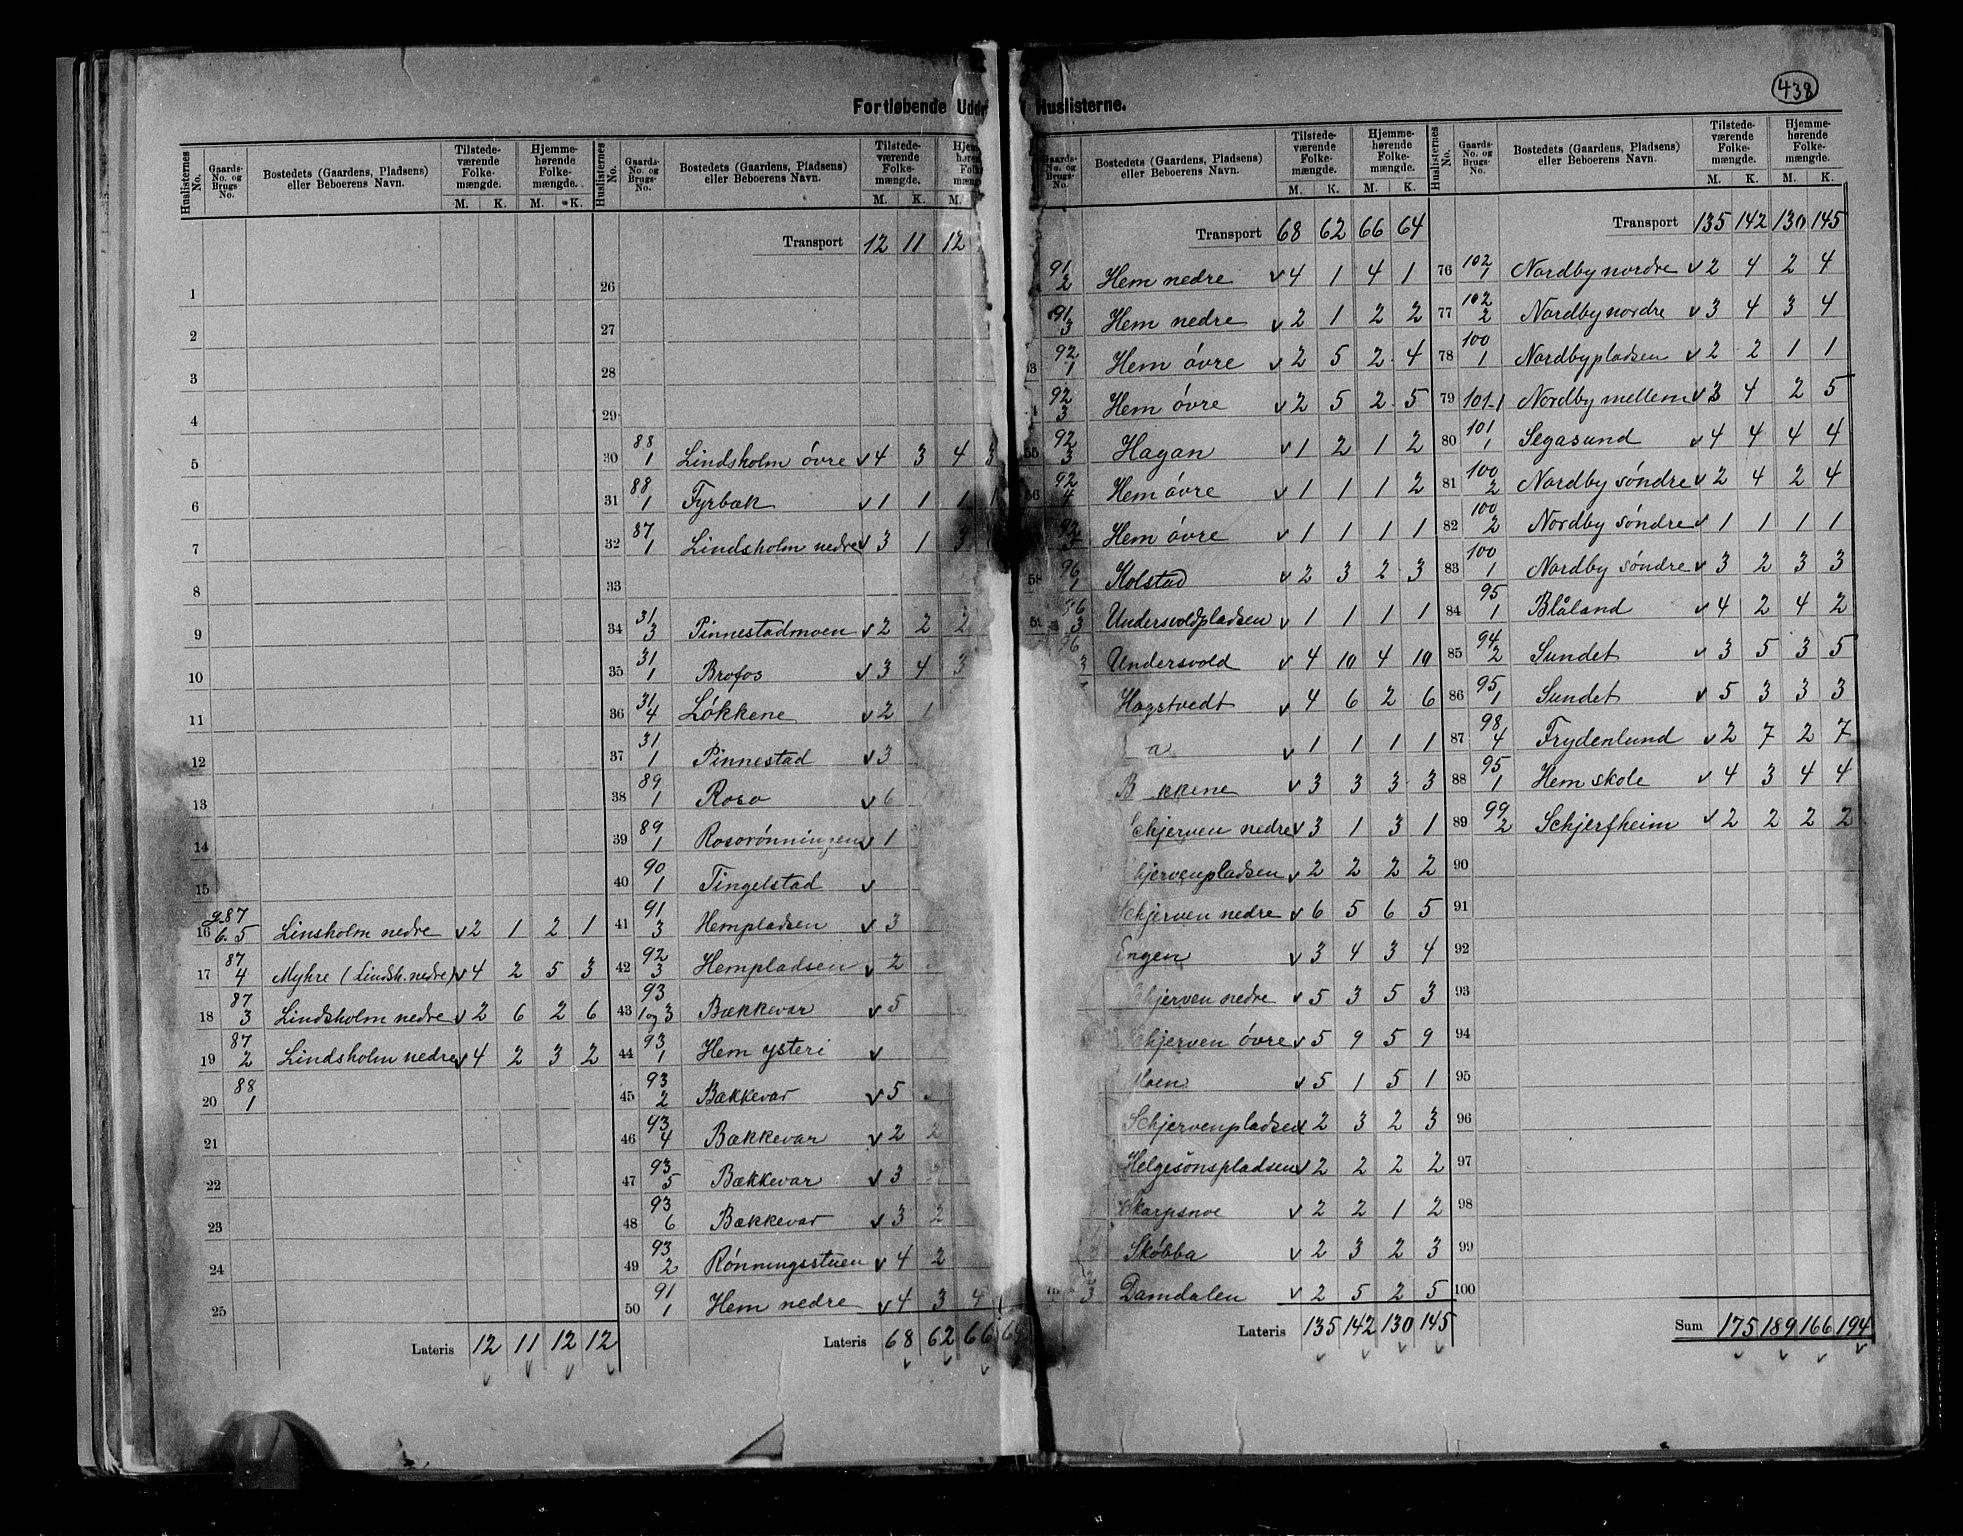 438
Fortløbende Uddr
Huslisterne.
Huslisternes No. Gaards-No. og Brugs-No. Bostedets (Gaardens, Pladsens) eller Beboerens Navn. Tilstedeværende Folkemængde. M. K. Hjemmehørende Folkemængde. M. K.
1
2
3
4
5
6
7
8
9
10
11
12
13
14
15
16 g.87 b.5 Linsholm nedre v 2 1 2 1
17 87/4 Myhre (Lindsh. nedre) v 4 2 5 3
18 87/3 Lindsholm nedre v 2 6 2 6
19 87/2 Lindsholm nedre v 4 2 3 2
20 88/1
21
22
23
24
25
Lateris 12 11 12 12
Huslisternes No. Gaards-No. og Brugs-No. Bostedets (Gaardens, Pladsens) eller Beboerens Navn. Tilstedeværende Folkemængde. M. K. M.
Transport 12 11 12
26
27
28
29
30 88/1 Lindsholm övre v 4 3 4 3
31 88/1 Fyrbæk v 1 1 1 1
32 87/1 Lindsholm nedre v 3 1 3
33
34 31/3 Pinnestadmoen v 2 2 2
35 31/1 Brofos v 3 4 3
36 31/4 Løkkene v 2 1
37 31/1 Pinnestad v 3
38 89/1 Roso v 6
39 89/1 Rosorønningen v 1
40 90/1 Tingelstad v
41 91/3 Hempladsen v 3
42 92/3 Hempladsen v 2
43 93/1 og 3 Bækkevar v 5
44 93/1 Hem ysteri v
45 93/2 Bækkevar v 5
46 93/4 Bækkevar v 2 2
47 93/5 Bækkevar v 3
48 93/6 Bækkevar v 3 2
49 93/2 Rønningsstuen v 4 2
50 91/1 Hem nedre v 4 3 4
Lateris 68 62 66
Gaards-No. og Brugs-No. Bostedets (Gaardens, Pladsens) eller Beboerens Navn. Tilstedeværende Folkemængde. M. K. Hjemmehørende Folkemængde. M. K.
Transport 68 62 66 64
91/2 Hem nedre v 4 1 4 1
91/3 Hem nedre v 2 1 2 2
92/1 Hem övre v 2 5 2 4
92/3 Hem övre v 2 5 2 5
55 92/3 Hagan v 1 2 1 2
56 92/4 Hem övre v 1 1 1 2
92/5 Hem övre v 1 1 1 1
58 96/1 Kolstad v 2 3 2 3
59 96/3 Undersvoldpladsen v 1 1 1 1
96/3 Undersvold v 4 10 4 10
Hagstvedt v 4 6 2 6
a v 1 1 1 1
B kkene v 3 3 3 3
Schjerven nedre v 3 1 3 1
hjervenpladsen v 2 2 2 2
Schjerven nedre v 6 5 6 5
Engen v 3 4 3 4
hjerven nedre v 5 3 5 3
Schjerven övre v 5 9 5 9
Moen v 5 1 5 1
Schjervenpladsen v 2 3 2 3
Helgesönspladsen v 2 2 2 2
Skarpsnoe v 2 2 1 2
Skøbba v 2 3 2 3
3 Damdalen v 2 5 2 5
Lateris 135 142 130 145
Huslisternes No. Gaards-No. og Brugs-No. Bostedets (Gaardens, Pladsens) eller Beboerens Navn. Tilstedeværende Folkemængde. M. K. Hjemmehørende Folkemængde. M. K.
Transport 135 142 130 145
76 102/1 Nordby nordre v 2 4 2 4
77 102/2 Nordby nordre v 3 4 3 4
78 100/1 Nordbypladsen v 2 2 1 1
79 101-1 Nordby mellem v 3 4 2 5
80 101/1 Segasund v 4 4 4 4
81 100/2 Nordby søndre v 2 4 2 4
82 100/2 Nordby søndre v 1 1 1 1
83 100/1 Nordby søndre v 3 2 3 3
84 95/1 Blåland v 4 2 4 2
85 94/2 Sundet v 3 5 3 5
86 95/1 Sundet v 5 3 3 3
87 98/4 Frydenlund v 2 7 2 7
88 95/1 Hem skole v 4 3 4 4
89 99/2 Schjerfheim v 2 2 2 2
90
91
92
93
94
95
96
97
98
99
100
Sum 175 189 166 194